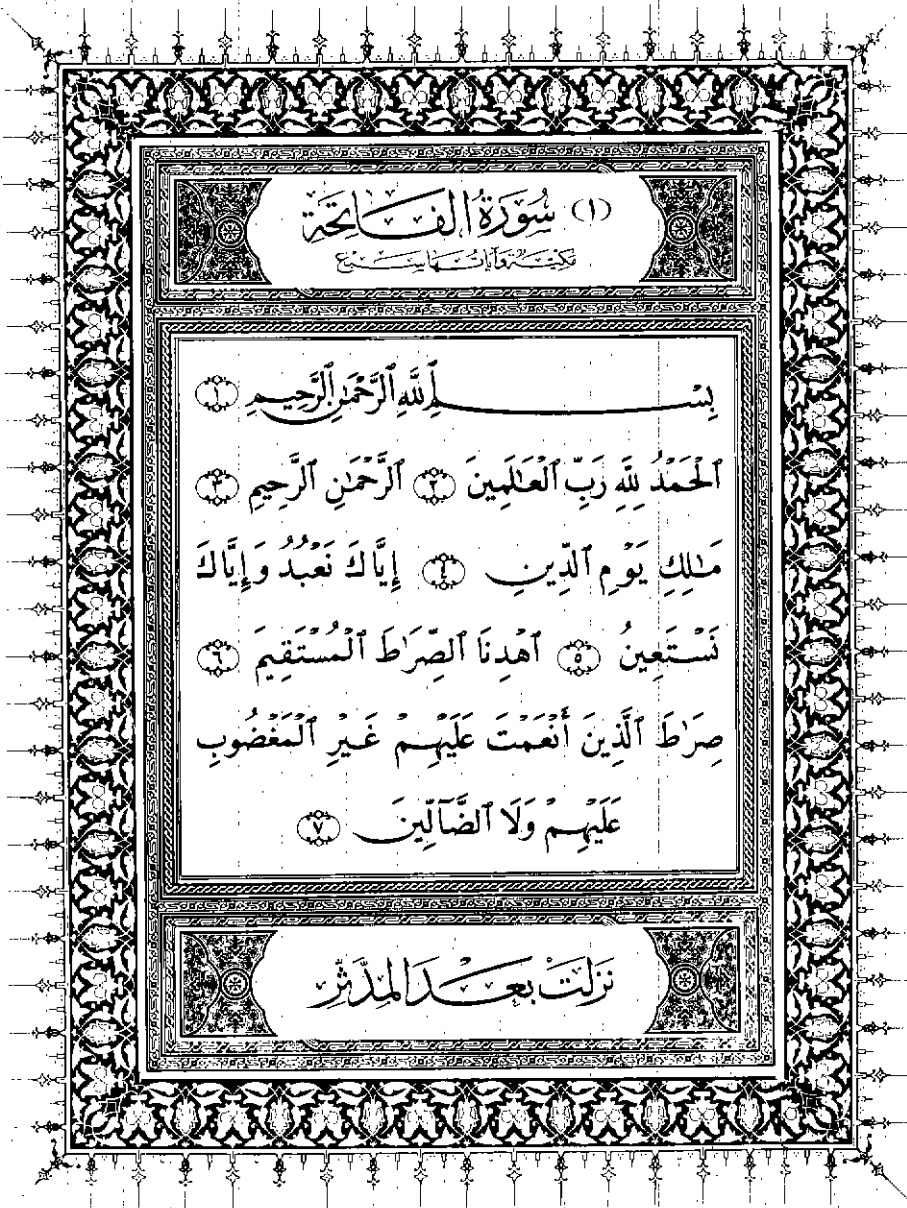 (١) سُورَةُ الفَاتِحَةِ
مَكِّيَّة وَآيَاتُهَا سَبْع
بِسْمِ ٱللَّهِ ٱلرَّحْمَٰنِ ٱلرَّحِيمِ ١
ٱلْحَمْدُ لِلَّهِ رَبِّ ٱلْعَٰلَمِينَ ٢ ٱلرَّحْمَٰنِ ٱلرَّحِيمِ ٣
مَٰلِكِ يَوْمِ ٱلدِّينِ ٤ إِيَّاكَ نَعْبُدُ وَإِيَّاكَ
نَسْتَعِينُ ٥ ٱهْدِنَا ٱلصِّرَٰطَ ٱلْمُسْتَقِيمَ ٦
صِرَٰطَ ٱلَّذِينَ أَنْعَمْتَ عَلَيْهِمْ غَيْرِ ٱلْمَغْضُوبِ
عَلَيْهِمْ وَلَا ٱلضَّآلِّينَ ٧
نَزَلَتْ بَعْدَ المُدَّثِّر